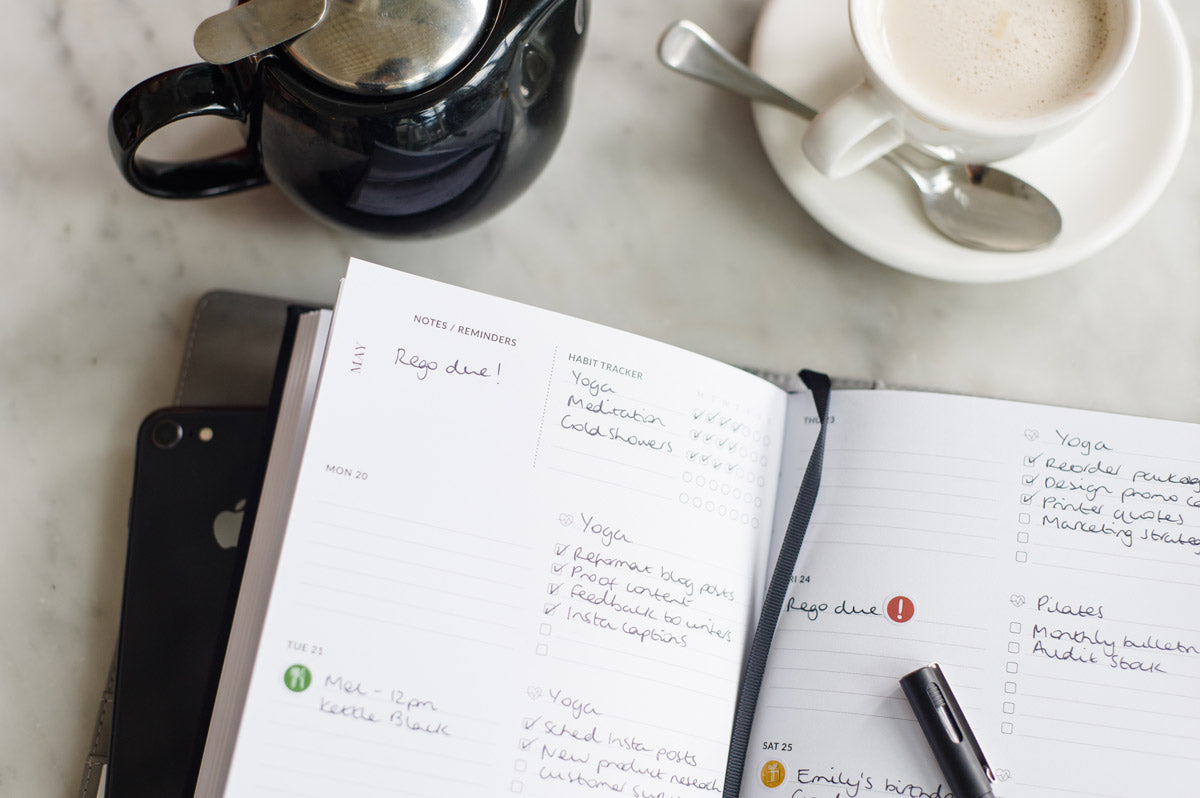 MAY
NOTES / REMINDERS
Rego due!
HABIT TRACKER
Yoga
Meditation
Cold showers
MON 20
Yoga
Reformat blog posts
Proof content
Feedback to writers
Insta captions
TUE 21
Mel - 12pm
Kettle Black
Yoga
Sched insta posts
New product
Customer
THU 23
Yoga
Reorder
Design promo
Printer quotes
Marketing
FRI 24
Rego due !
Pilates
Monthly
Audit stock
SAT 25
Emily's